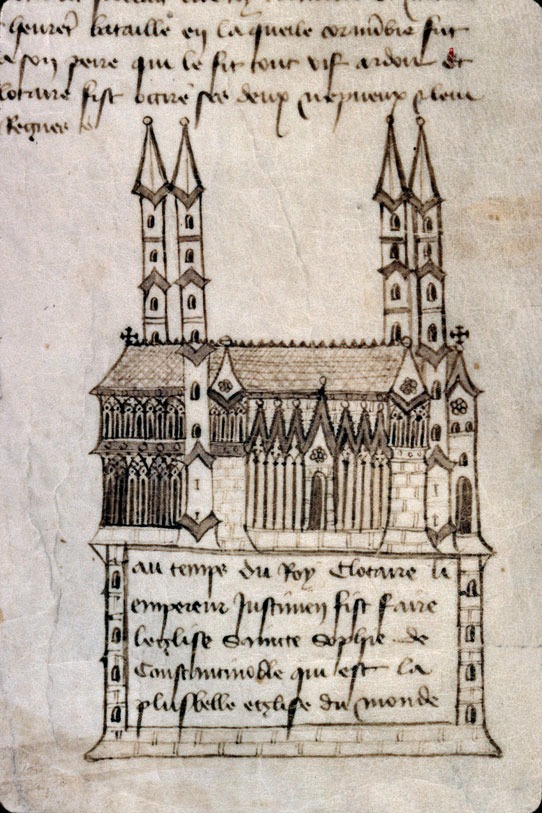 heure bataille en la quelle
son peire qui le fit tout vif ardoir Et
clotaire fist occire ses deux nepveux
Regner
au temps du Roy Clotaire
empereur Justinien fist faire
leglise Saincte Sophie de
Constantinoble qui est la
plusbelle eglise du monde